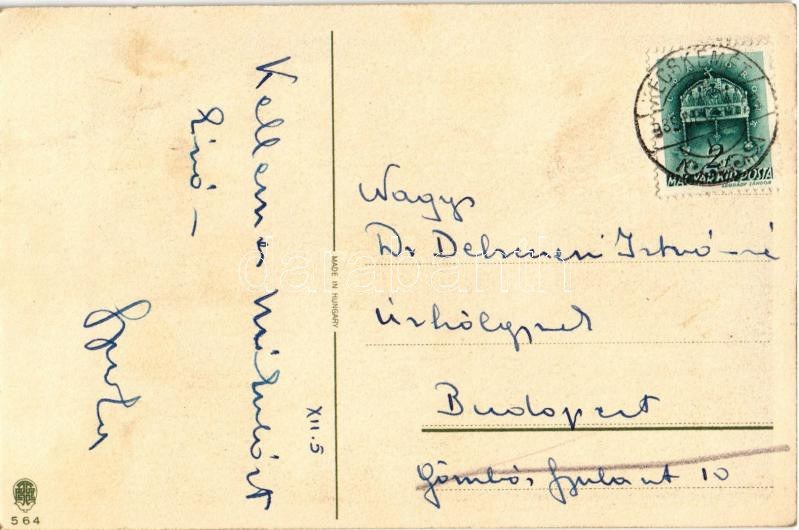 Kellemes Mikulást
Zivó –
Gyula
XII. 5
MADE IN HUNGARY
564
KECSKEMÉT
2f
MAGYAR KIR. POSTA
LÉGRÁDY SÁNDOR
Nagys
Dr Debreceni Istvánné
úrhölgynek
Budapest
Gömbös Gyula út 10
darabanth